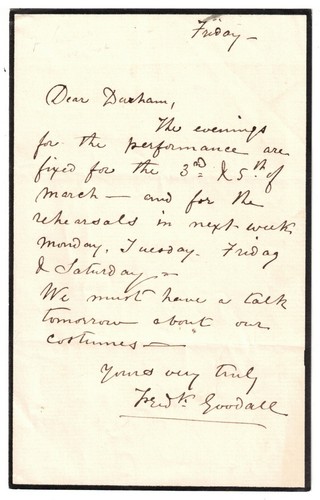 Friday —
Dear Durham,
The evenings
for the performance are
fixed for the 3rd & 5th of
March — and for the
rehearsals in next week
Monday, Tuesday. Friday
& Saturday —
We must have a talk
tomorrow about our
costumes —
Yours very truly
Fredk. Goodall